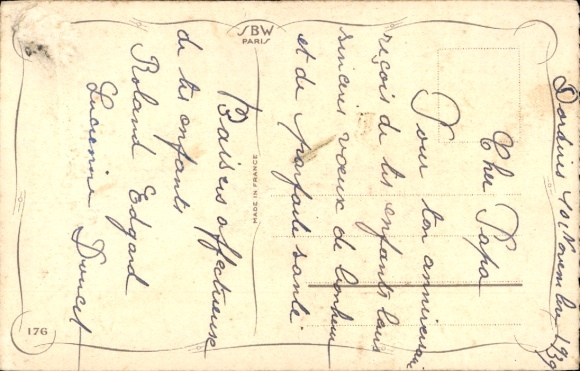 Dordives 10 Novembre 1939
Cher Papa
Pour ton anniversaire
reçois de tes enfants leurs
sincères vœux de bonheur
et de parfaite santé
Baisers affectueux
de tes enfants
Roland Edgard
Lucienne Doucet
SBW
PARIS
MADE IN FRANCE
176